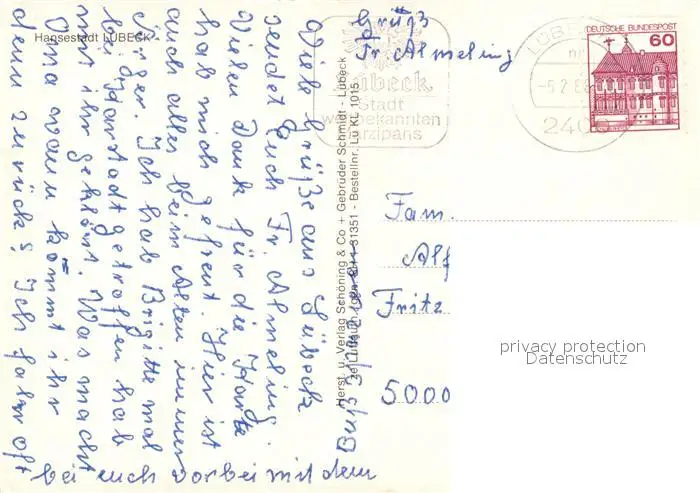 Hansestadt LÜBECK
Viele Grüße aus Lübeck
sendet Euch Fr. Almeling.
Vielen Dank für die Karte
hab mich gefreut. Hier ist
auch alles beim Alten immer
Ich hab Brigitte mal
bei Karstadt getroffen hab
mit ihr geklönt. Was macht
Oma wann kommt ihr
denn zurück? Ich fahr oft
bei euch vorbei mit dem
Bus
Gruß
Fr. Almeling
Herst. u. Verlag Schöning & Co + Gebrüder Schmidt - Lübeck
Bestellnr. Lü KL 1015
Lübeck
Stadt
des weltbekannten
Marzipans
LÜBECK
240
DEUTSCHE BUNDESPOST
60
Fam.
Alf
Fritz
5000
privacy protection
Datenschutz